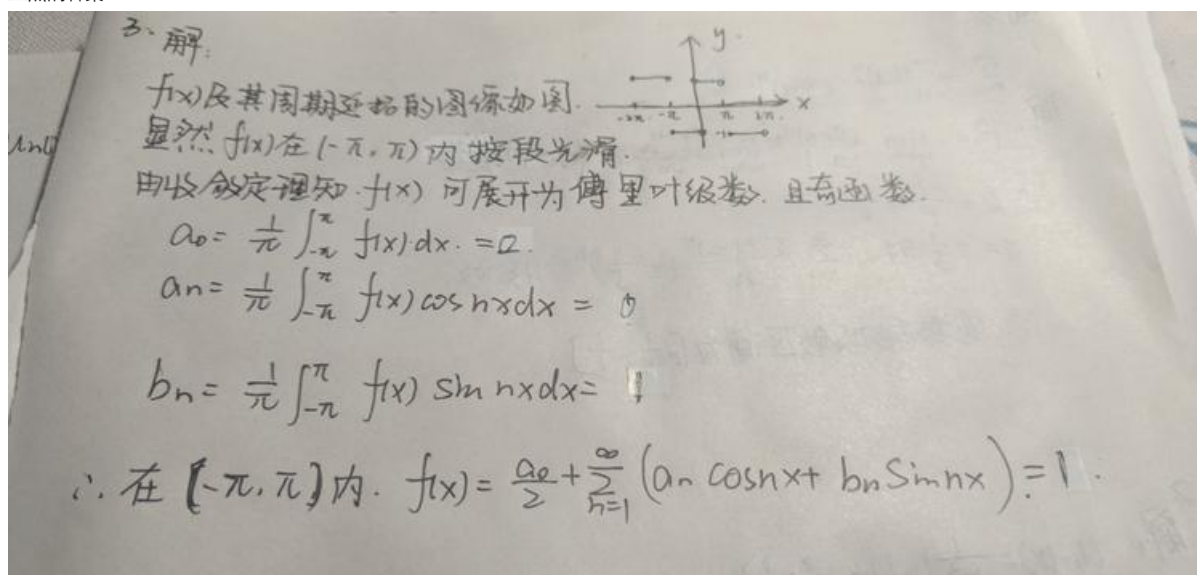 3. 解:
f(x)及其周期延拓的图像如图.
y
x
-2π -π π 2π
-1
显然 f(x)在(-π,π)内按段光滑.
由收敛定理知.f(x)可展开为傅里叶级数.且奇函数.
a₀= 1/π ∫_{-π}^{π} f(x)dx.=0.
an= 1/π ∫_{-π}^{π} f(x)cosnxdx = 0
bn= 1/π ∫_{-π}^{π} f(x) sin nxdx= 1
∴在[-π,π]内. f(x)= a₀/2 + ∑_{n=1}^{∞} (an cosnx+ bn Sinnx)=1.